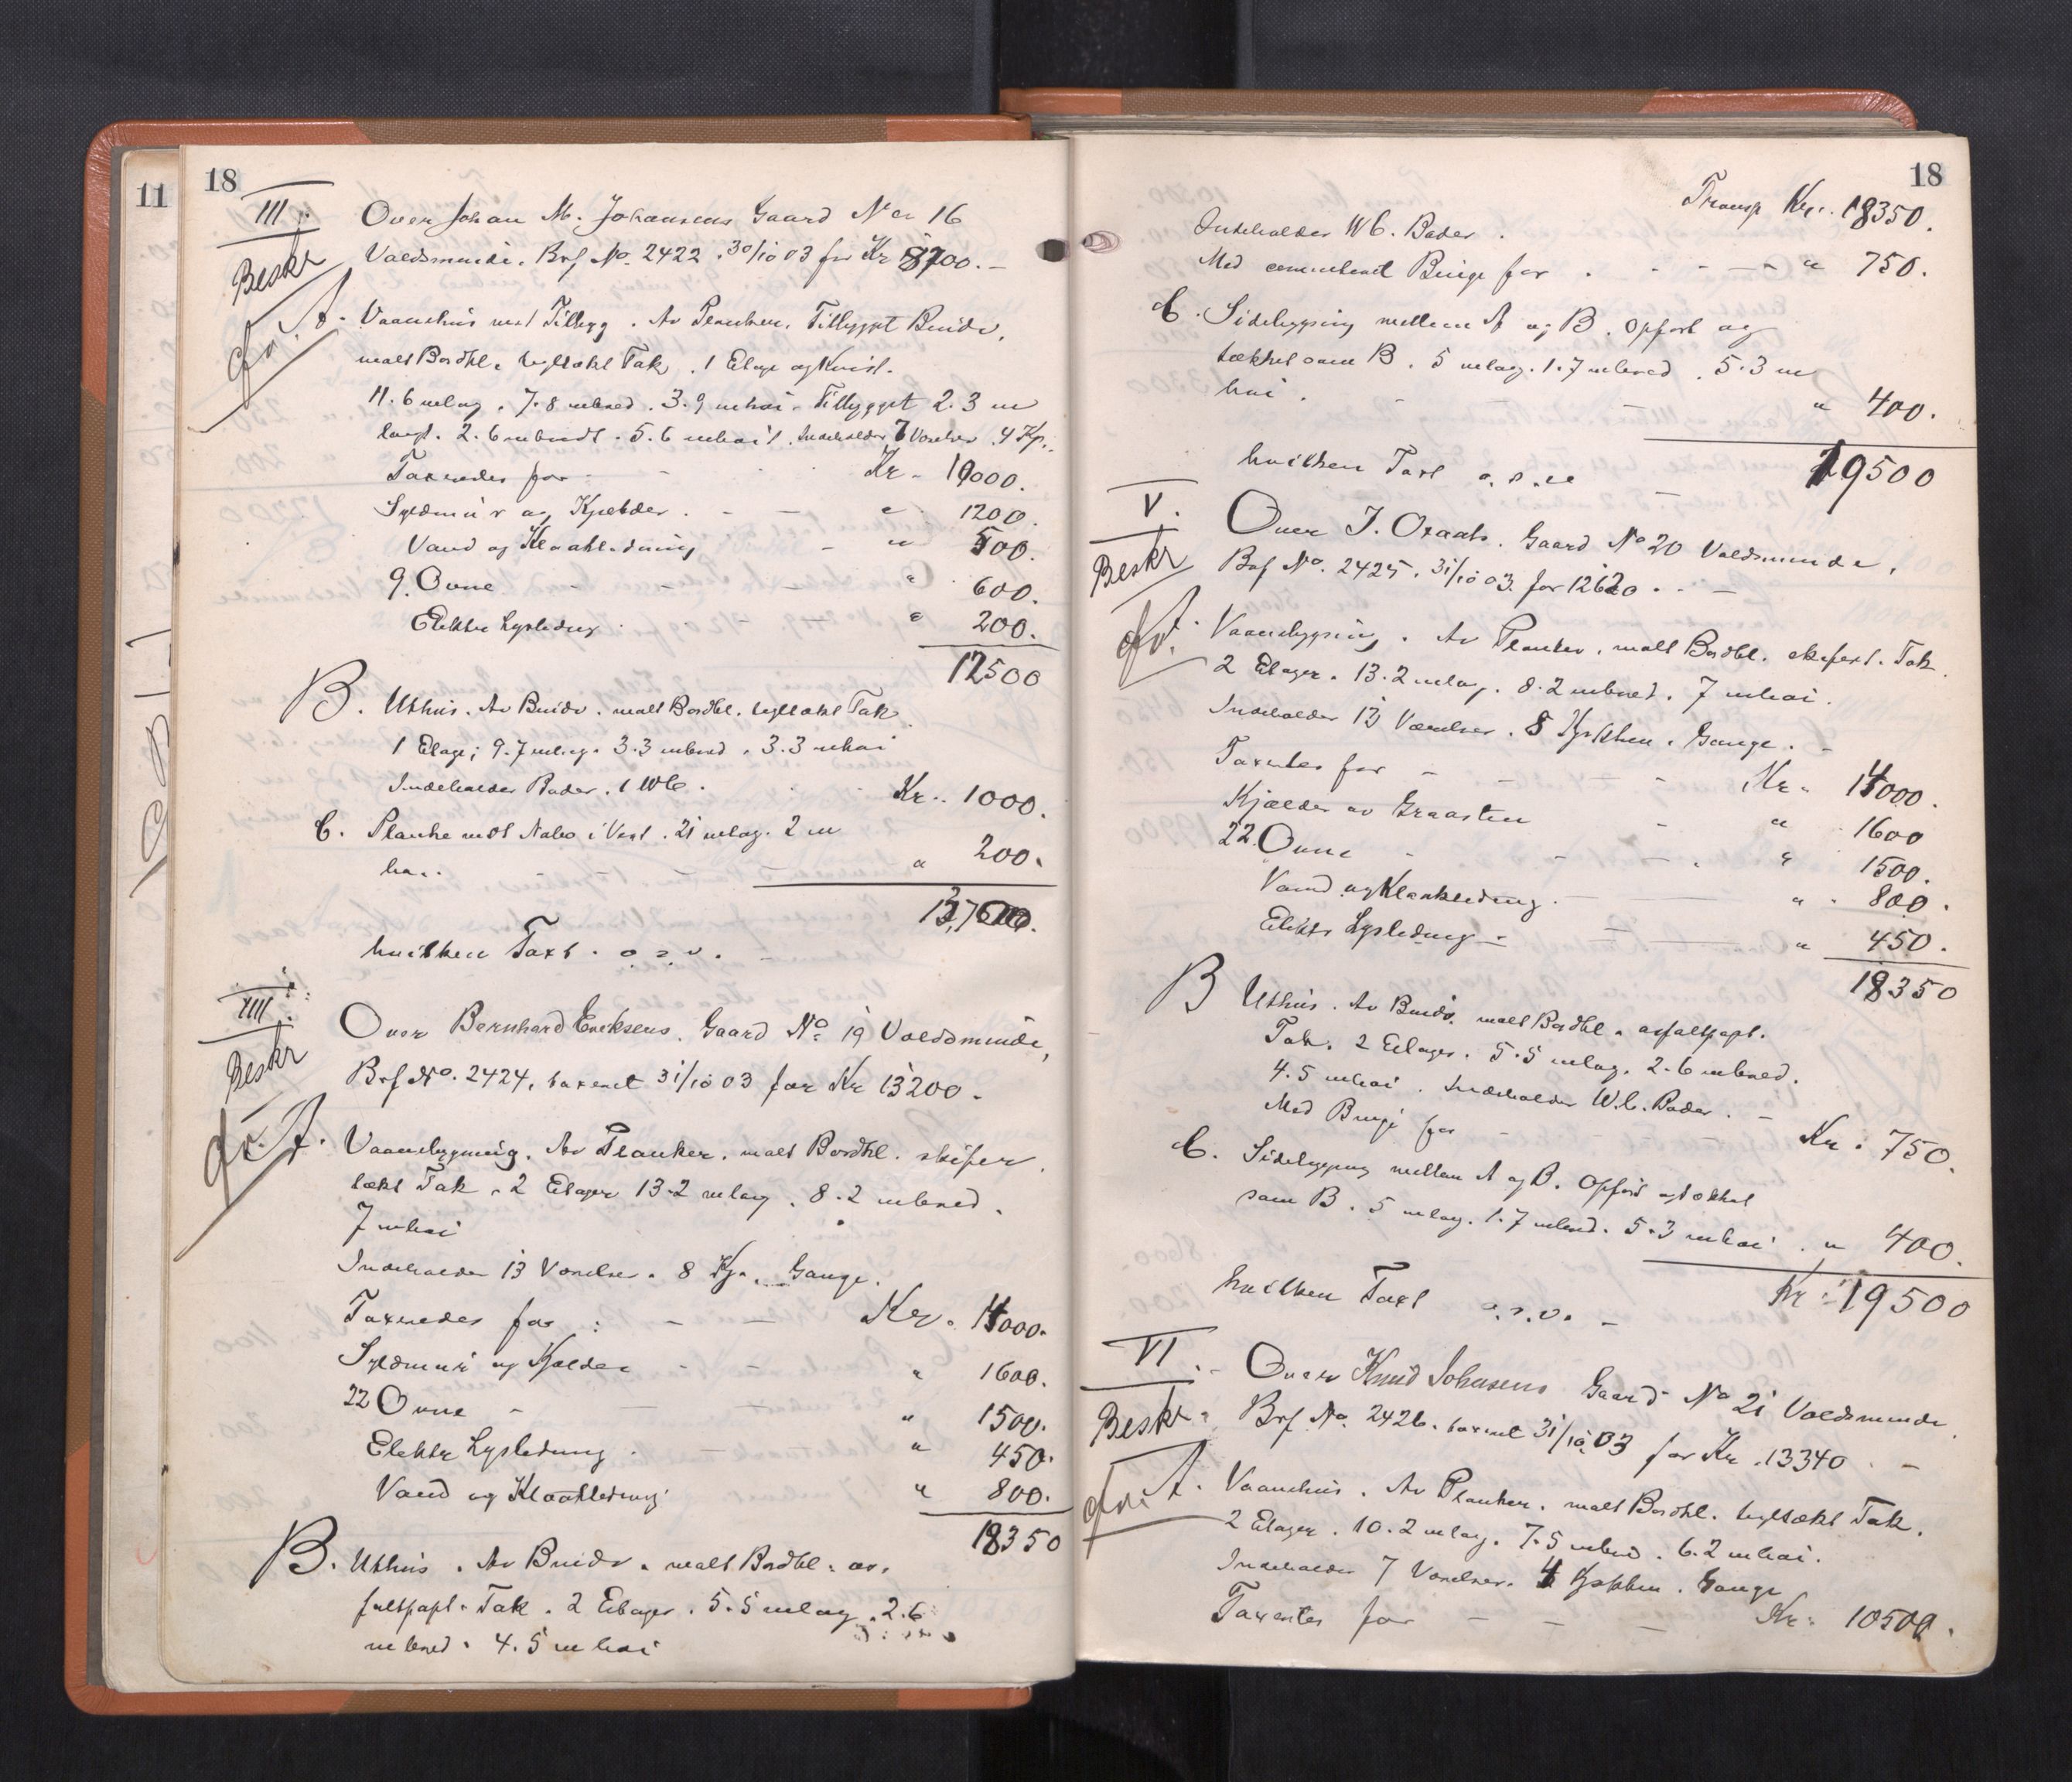 11
18
III.
Over Johan M. Johansens Gaard No 16
Beskr
Valdsminde. Brf No. 2422. 30/10 03 for Kr 8700.-
A. Vaanehus med Tilbyg. Av Planker. Tilbygget Bindv.
malt Bordkl. teglt\u00e6kt Tak. 1 Etage og Kvist.
11.6 m lag. 7.8 m bred. 3.9 m h\u00f8i. Tilbygget 2.3 m
langt. 2.6 m bredt. 5.6 m h\u00f8it. Indeholder 7 V\u00e6relser. 4 Kj\u00f8.
Taxeredes for - Kr. 10000.
Syldmur og Kj\u00e6lder. - " 1200.
Vand og Kloakledning - " 500.
9 Ovne - " 600.
Elektr Lysledng. - " 200.
12500
B. Uthus. Av Bindv. malt Bordkl. teglt\u00e6kt Tak.
1 Etage; 9.7 m lag. 3.3 m bred. 3.3 m h\u00f8i
Indeholder Boder. 1 WC. Kr. 1000.
C. Planke mot Nabo i Vest. 21 m lag. 2 m
h\u00f8i. " 200.
13,700.
hvilken Taxt. o. s. v. -
IIII.
Over Bernhard Eriksens. Gaard No 19 Valdsminde,
Beskr
Brf No. 2424, taxeret 31/10 03 for Kr 13200.
A. Vaanebygning. Av Planker. malt Bordkl. skifer
t\u00e6kt Tak. 2 Etager 13.2 m lag. 8.2 m bred.
7 m h\u00f8i
Indeholder 13 V\u00e6relser. 8 Kj\u00f8. Gange.
Taxeredes for : - Kr. 14000.
Syldmur og Kj\u00e6lder - " 1600.
22 Ovne - " 1500.
Elektr Lysledning. " 450.
Vand og Kloakledning " 800.
18350
B. Uthus. Av Bindv. malt Bordkl. as.
faltpapt. Tak. 2 Etager. 5.5 m lag. 2.6
m bred. 4.5 m h\u00f8i
18
Transp Kr. 18350.
Indeholder WC. Boder.
Med Binge for - " 750.
C. Sidebygning mellem A og B. opf\u00f8rt og
t\u00e6kket som B. 5 m lag. 1.7 m bred. 5.3 m
h\u00f8i. - " 400.
hvilken Taxt o. s. v. - 19500
V.
Over J. Gaard No 20 Valdsminde,
Beskr
Brf No. 2425. 31/10 03. for 12620. -
A. Vaanebygning. Av Planker, malt Bordkl. skifert. Tak.
2 Etager. 13.2 m lag. 8.2 m bred. 7 m h\u00f8i.
Indeholder 13 V\u00e6relser. 8 Kj\u00f8kken. Gange. -
Taxertes for - Kr. 14000.
Kj\u00e6lder av Graasten - " 1600
22 Ovne - " 1500.
Vand og Kloakledning. - " 800.
Elektr Lysledning - " 450.
18350
B Uthus. Av Bindv. malt Bordkl. asfaltpapt.
Tak. 2 Etager. 5.5 m lag. 2.6 m bred.
4.5 m h\u00f8i. Indeholder W.C. Boder. -
Med Binge for - Kr. 750.
C. Sidebygning mellem A og B. Opf\u00f8rt og t\u00e6kket
som B. 5 m lag. 1.7 m bred. 5.3 m h\u00f8i. " 400.
hvilken Taxt o. s. v. - Kr. 19500
VI.
Over Knud Johnsens Gaard No 21 Valdsminde.
Beskr.
Brf No. 2426. taxeret 31/10. 03 for Kr. 13340. -
A. Vaanehus. Av Planker. malt Bordkl. teglt\u00e6kt Tak.
2 Etager. 10.2 m lag. 7.5 m bred. 6.2 m h\u00f8i.
Indeholder 7 V\u00e6relser. 4 Kj\u00f8kken. Gange
Taxertes for - Kr. 10500.